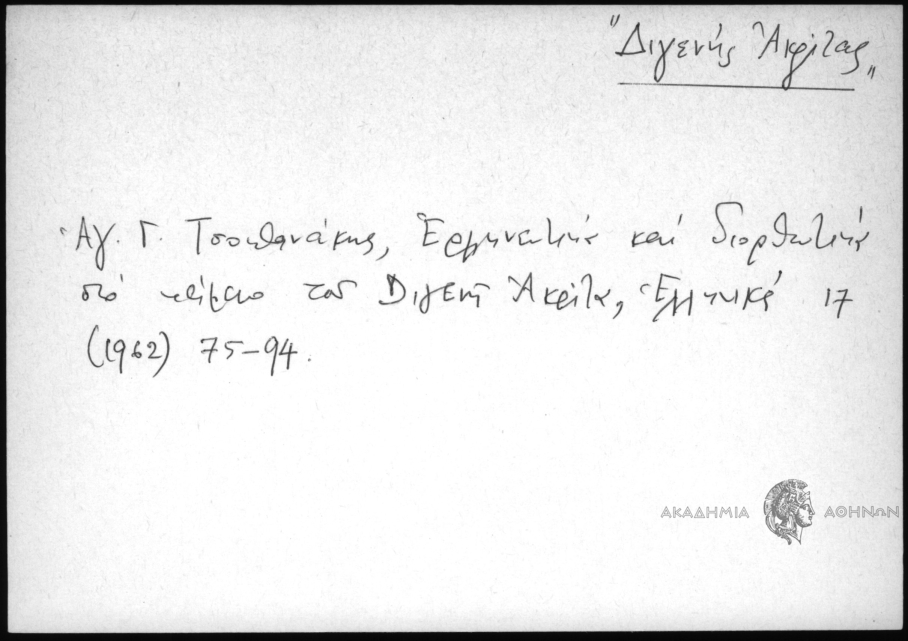 "Διγενής Ἀκρίτας"
Ἀγ. Γ. Τσοπανάκης, Ἑρμηνευτικά καί διορθωτικά
στό κείμενο τοῦ Διγενῆ Ἀκρίτα, Ἑλληνικά 17
(1962) 75-94.
ΑΚΑΔΗΜΙΑ ΑΘΗΝΩΝ